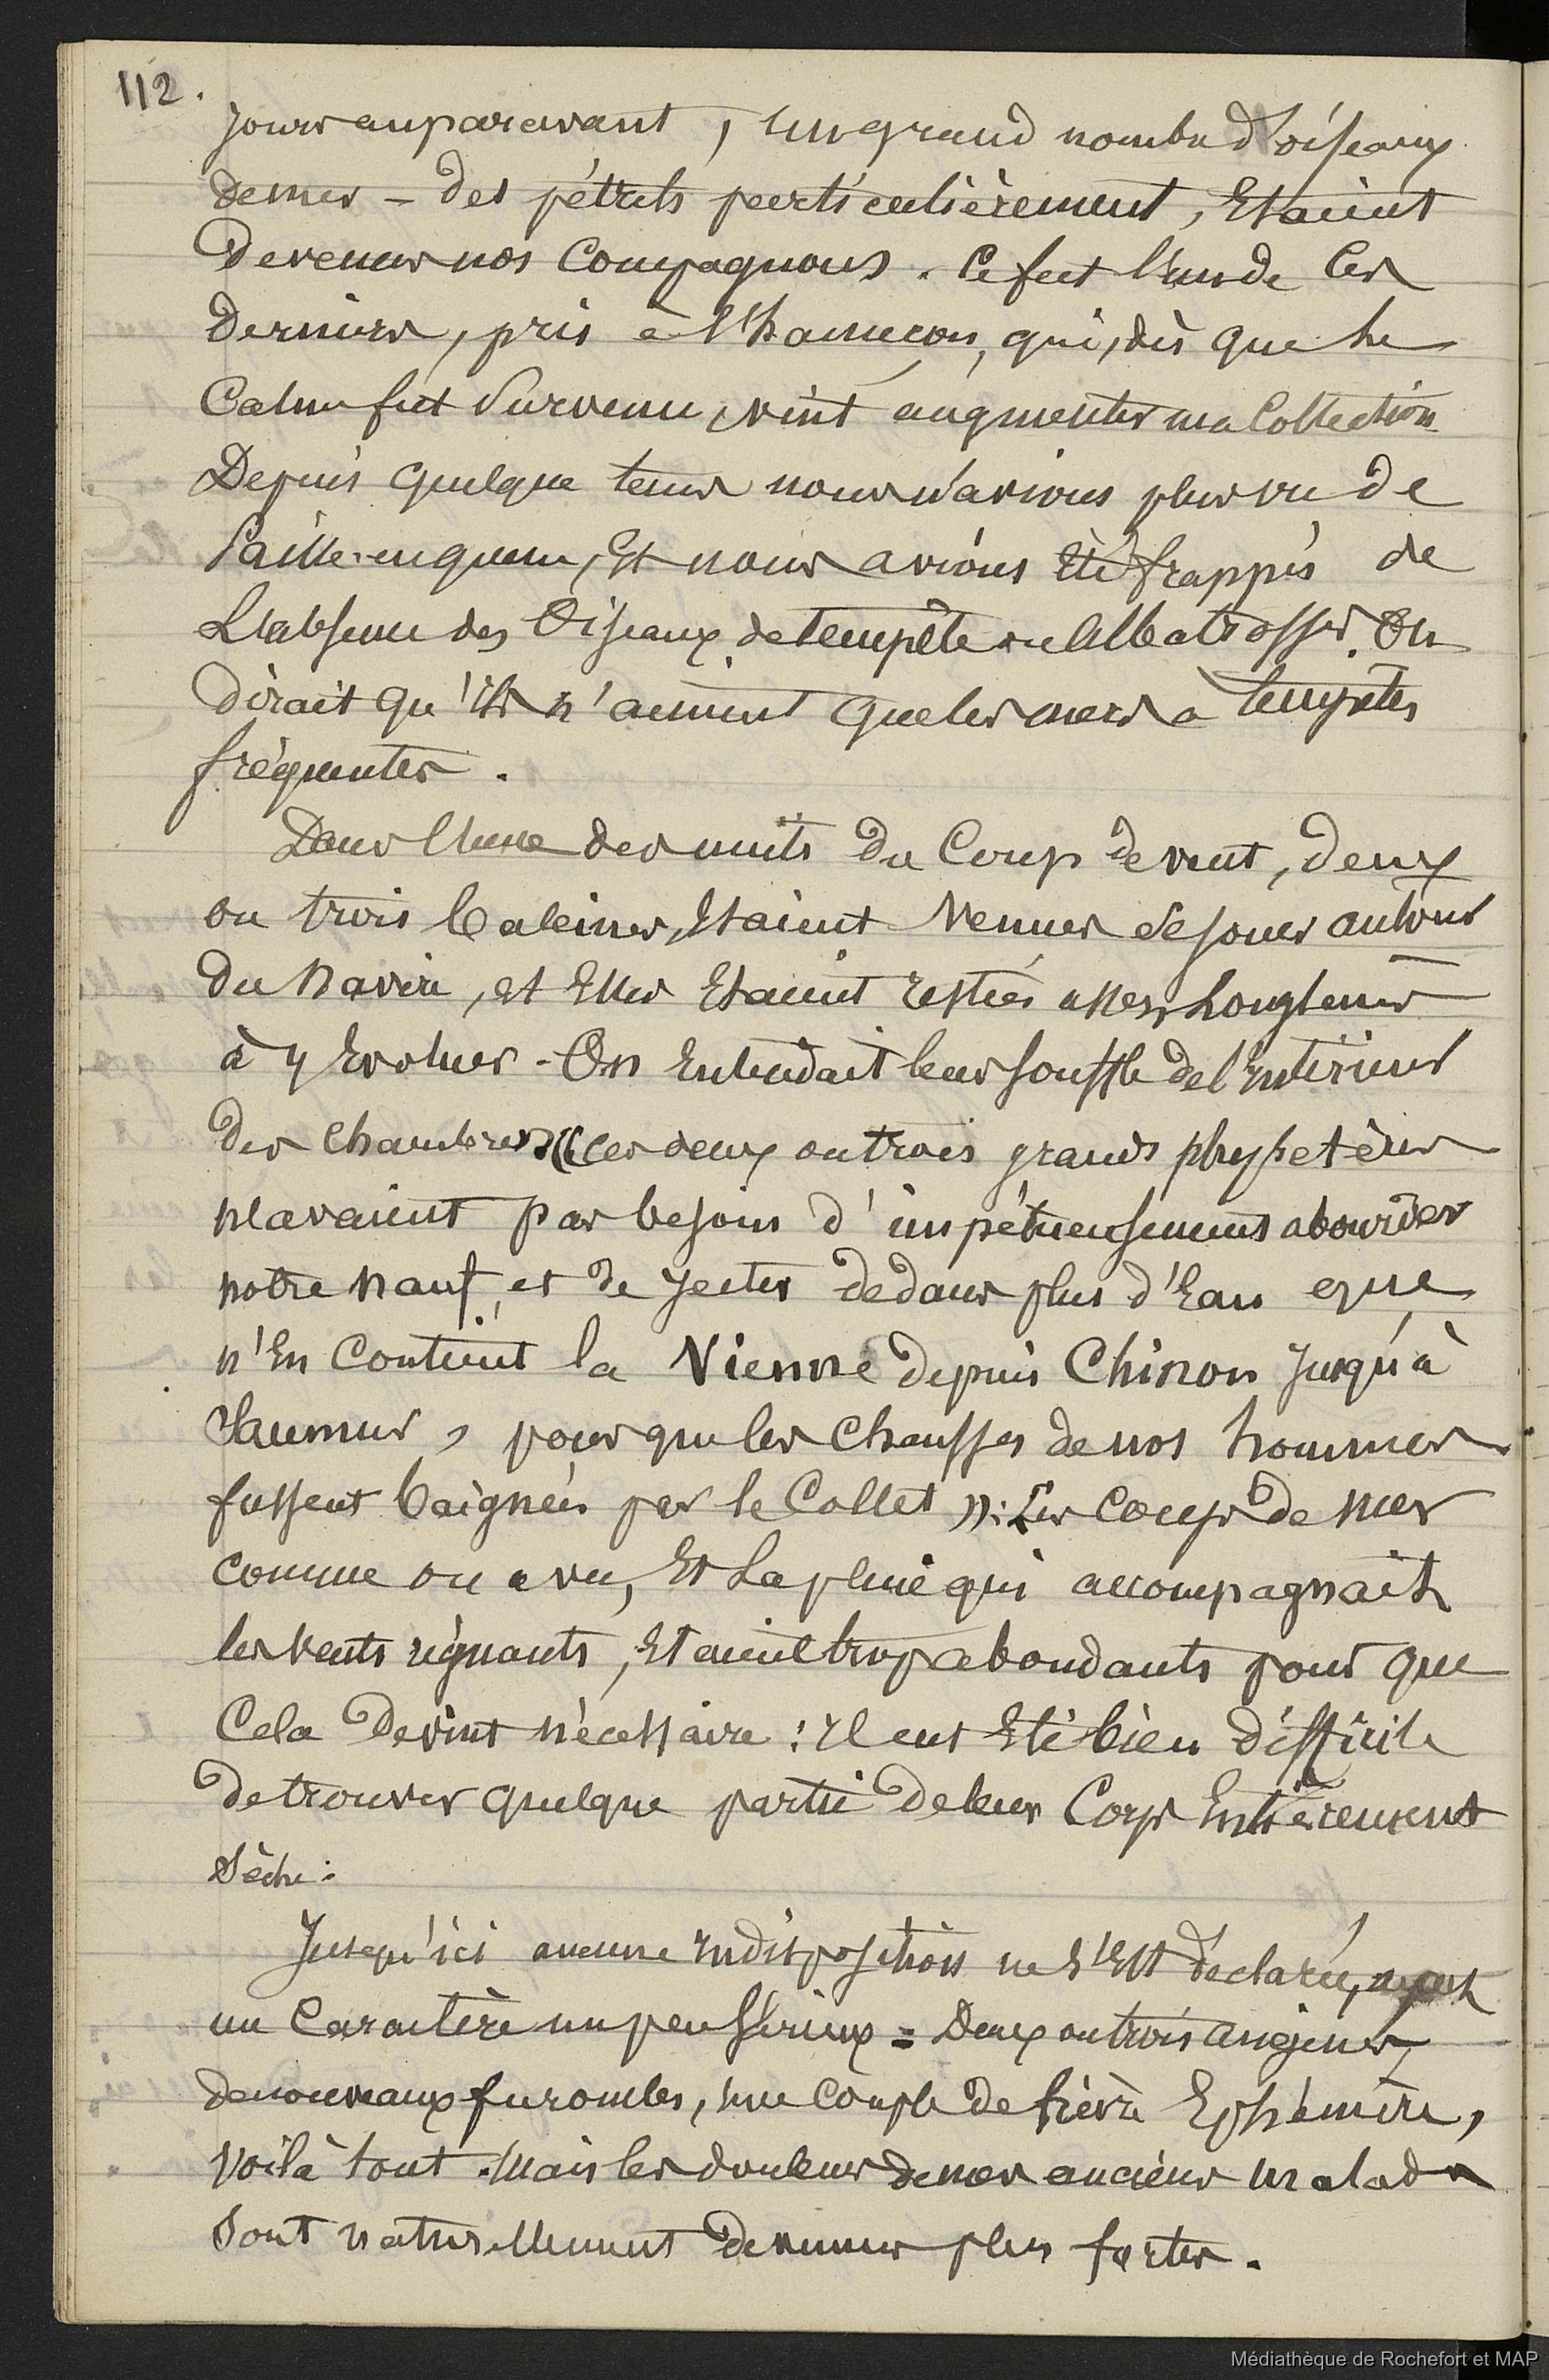 112.
jours auparavant, un grand nombre d'oiseaux
de mer – des pétrels particulièrement, Etaient
devenus nos compagnons. Ce fut l'un de ces
derniers, pris à l'hameçon, qui, dès que le
Calme fut survenu, vint augmenter ma Collection
Depuis quelque tems nous n'avions plus vu de
Paille-en queue, Et nous avions Eté frappés de
L'absence des Oiseaux de tempête ou Albatrosses. On
dirait qu'ils n'aiment que les mers à tempêtes
fréquentes.
Dans l'une des nuits du Coup de vent, deux
ou trois baleines, Etaient venues se jouer autour
du Navire, et Elles Etaient restées assez Longtems
à y Evoluer - On Entendait leur souffle de l'Intérieur
des chambres. « Ces deux ou trois grands physetères
n'avaient pas besoin d'impétueusement abourder
notre nauf, et de jecter dedans plus d'Eau que
n'En contient la Vienne depuis Chinon jusqu'à
Saumur, pour que les chausses de nos hommes
fussent baignées par le Collet »: Les coups de mer
comme on a vu, Et La pluie qui accompagnait
les vents régnants, Etaient trop abondants pour que
Cela devint nécessaire : Il eut Eté bien difficile
de trouver quelque partie de leur Corps Entièrement
sèche.
Jusqu'ici aucune Indisposition ne s'Est déclarée,
un Caractère un peu sérieux = Deux ou trois angines,
de nouveaux furoncles, une couple de fièvre Ephémère,
Voilà tout. Mais les douleurs de mes anciens malades
sont naturellement devenues plus fortes.
Médiathèque de Rochefort et MAP